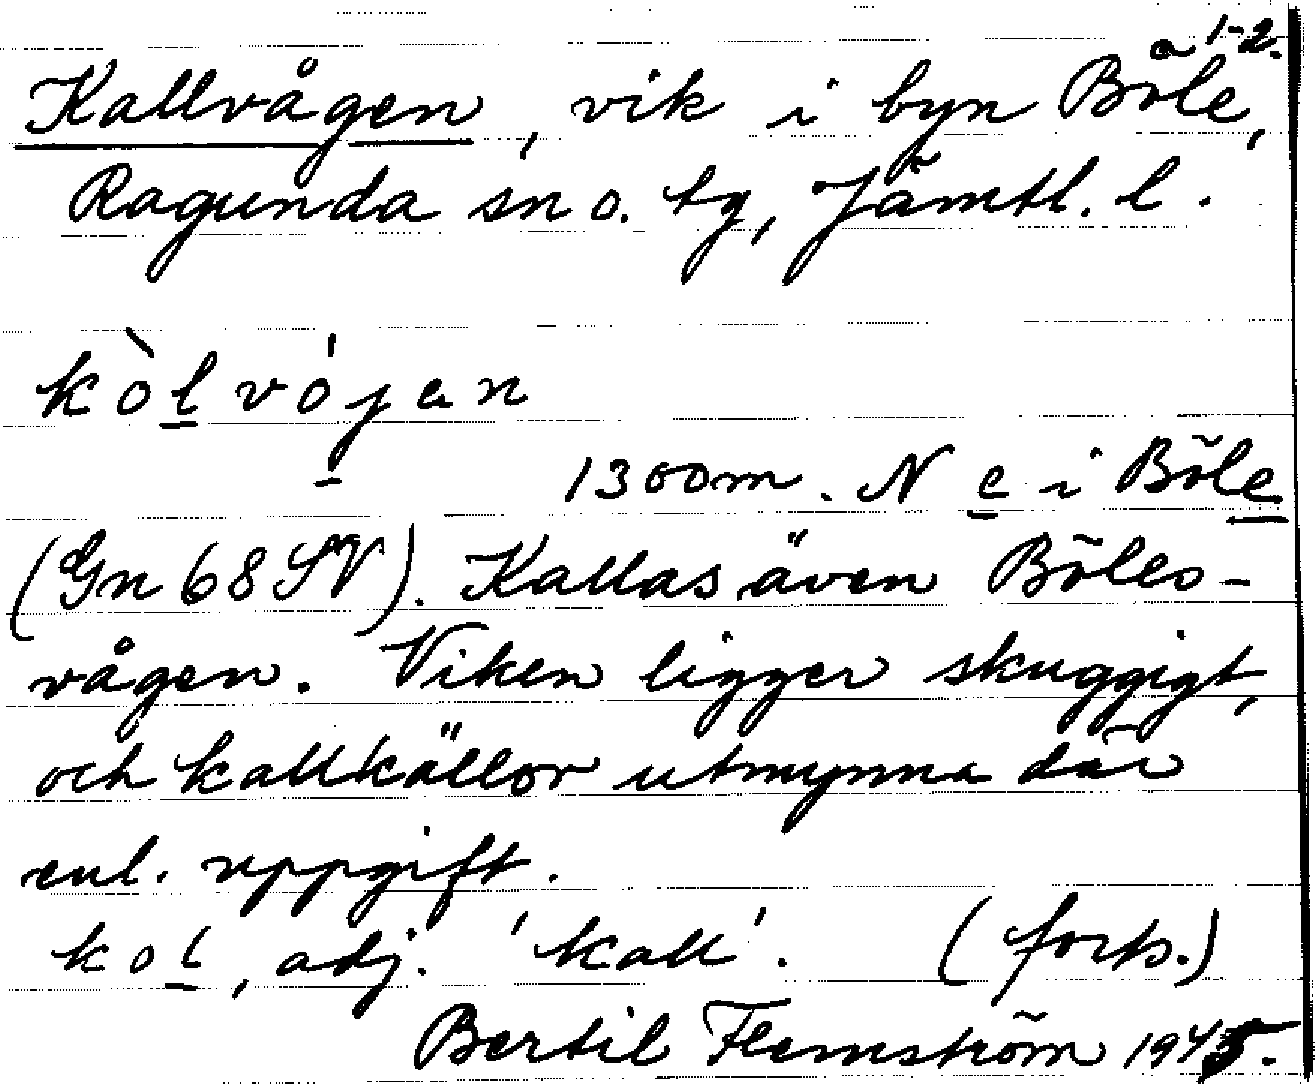 a 1-2.
Kallvågen, vik i byn Böle,
Ragunda sn o. tg, Jämtl. l.
kòlvójan
1300 m. N e i Böle
(Gn 68 SV). Kallas även Böles-
vågen. Viken ligger skuggigt,
och kallkällor utmynna där
enl. uppgift.
kol, adj. 'kall'. (forts.)
Bertil Flemström 1945.